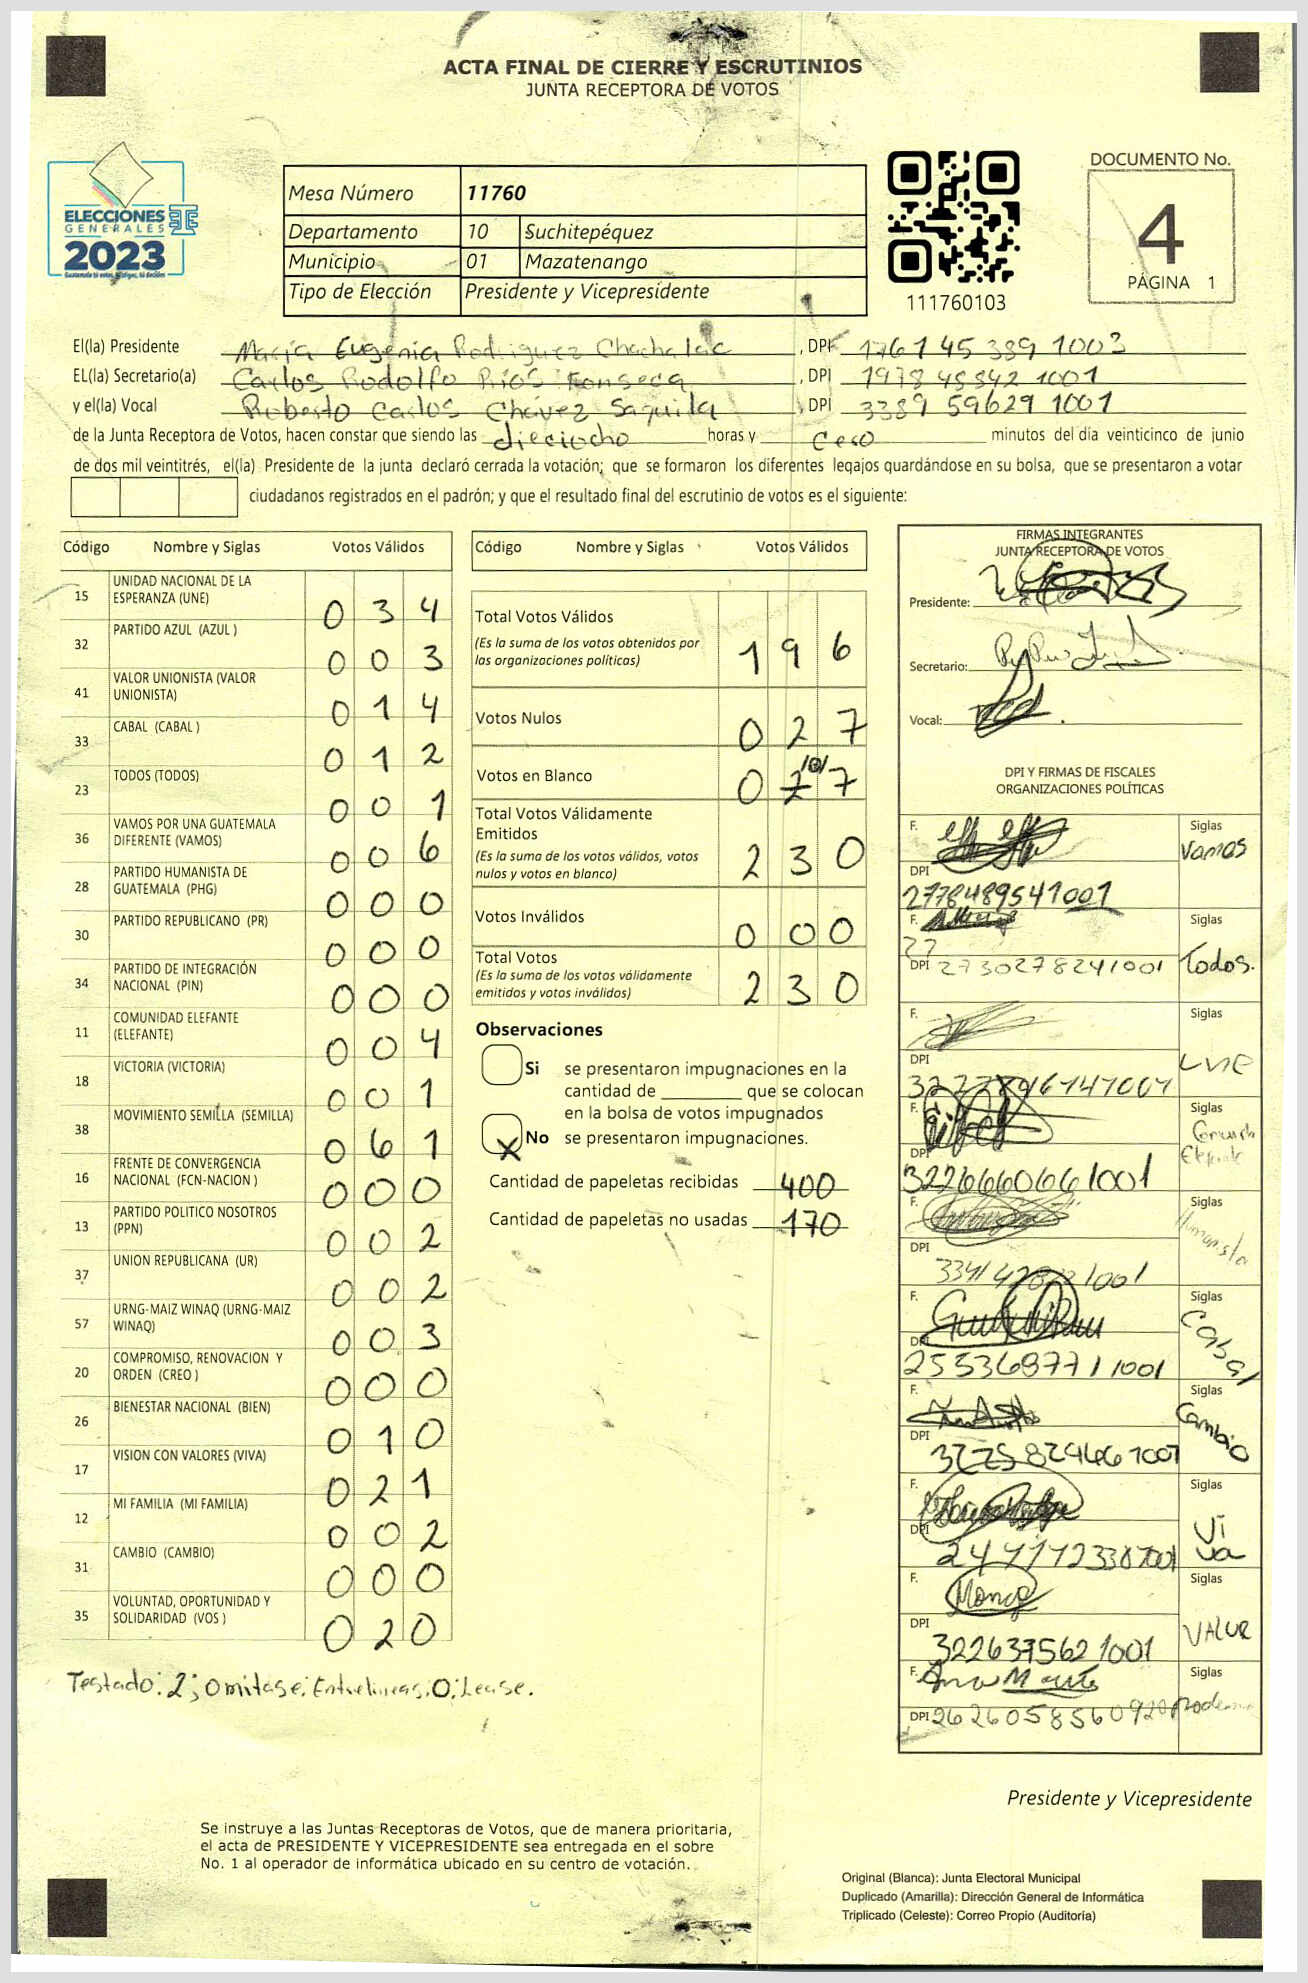 ACTA FINAL DE CIERRE Y ESCRUTINIOS
JUNTA RECEPTORA DE VOTOS
ELECCIONES
GENERALES
2023
Mesa Número 11760
Departamento 10 Suchitepéquez
Municipio 01 Mazatenango
Tipo de Elección Presidente y Vicepresidente
111760103
DOCUMENTO No.
4
PÁGINA 1
El(la) Presidente María Eugenia Rodriguez Chachalac, DPI 1761 45389 1003
EL(la) Secretario(a) Carlos Rodolfo Rios Fonseca, DPI 1978 45842 1001
y el(la) Vocal Roberto Carlos Chávez Saquila, DPI 3389 59629 1001
de la Junta Receptora de Votos, hacen constar que siendo las dieciocho horas y cero minutos del día veinticinco de junio
de dos mil veintitrés, el(la) Presidente de la junta declaró cerrada la votación; que se formaron los diferentes legajos guardándose en su bolsa, que se presentaron a votar
ciudadanos registrados en el padrón; y que el resultado final del escrutinio de votos es el siguiente:
Código Nombre y Siglas Votos Válidos
15 UNIDAD NACIONAL DE LA ESPERANZA (UNE) 0 3 4
32 PARTIDO AZUL (AZUL ) 0 0 3
41 VALOR UNIONISTA (VALOR UNIONISTA) 0 1 4
33 CABAL (CABAL ) 0 1 2
23 TODOS (TODOS) 0 0 1
36 VAMOS POR UNA GUATEMALA DIFERENTE (VAMOS) 0 0 6
28 PARTIDO HUMANISTA DE GUATEMALA (PHG) 0 0 0
30 PARTIDO REPUBLICANO (PR) 0 0 0
34 PARTIDO DE INTEGRACIÓN NACIONAL (PIN) 0 0 0
11 COMUNIDAD ELEFANTE (ELEFANTE) 0 0 4
18 VICTORIA (VICTORIA) 0 0 1
38 MOVIMIENTO SEMILLA (SEMILLA) 0 6 1
16 FRENTE DE CONVERGENCIA NACIONAL (FCN-NACION ) 0 0 0
13 PARTIDO POLITICO NOSOTROS (PPN) 0 0 2
37 UNION REPUBLICANA (UR) 0 0 2
57 URNG-MAIZ WINAQ (URNG-MAIZ WINAQ) 0 0 3
20 COMPROMISO, RENOVACION Y ORDEN (CREO ) 0 0 0
26 BIENESTAR NACIONAL (BIEN) 0 1 0
17 VISION CON VALORES (VIVA) 0 2 1
12 MI FAMILIA (MI FAMILIA) 0 0 2
31 CAMBIO (CAMBIO) 0 0 0
35 VOLUNTAD, OPORTUNIDAD Y SOLIDARIDAD (VOS ) 0 2 0
Testado: 2; Omitase: Entrelineas: 0: Lease.
Código Nombre y Siglas Votos Válidos
Total Votos Válidos 1 9 6
(Es la suma de los votos obtenidos por
las organizaciones políticas)
Votos Nulos 0 2 7
Votos en Blanco 0 /0/ 7
Total Votos Válidamente
Emitidos 2 3 0
(Es la suma de los votos válidos, votos
nulos y votos en blanco)
Votos Inválidos 0 0 0
Total Votos 2 3 0
(Es la suma de los votos válidamente
emitidos y votos inválidos)
Observaciones
Si se presentaron impugnaciones en la
cantidad de ________ que se colocan
en la bolsa de votos impugnados
X No se presentaron impugnaciones.
Cantidad de papeletas recibidas 400
Cantidad de papeletas no usadas 170
FIRMAS INTEGRANTES
JUNTA RECEPTORA DE VOTOS
Presidente:
Secretario:
Vocal:
DPI Y FIRMAS DE FISCALES
ORGANIZACIONES POLÍTICAS
F. Siglas Vamos
DPI 2778489541001
F. Siglas Todos.
27
DPI 2730278241001
F. Siglas UNE
DPI
F. Siglas Comunidad Elefante
DPI 3226660661001
F. Siglas Humanista
DPI
F. Siglas Cabal
DPI 25536897711001
F. Siglas Cambio
DPI
F. Siglas Viva
DPI
F. Siglas VALOR
DPI 3226375621001
F. Siglas
DPI 2626058560920
Presidente y Vicepresidente
Se instruye a las Juntas Receptoras de Votos, que de manera prioritaria,
el acta de PRESIDENTE Y VICEPRESIDENTE sea entregada en el sobre
No. 1 al operador de informática ubicado en su centro de votación.
Original (Blanca): Junta Electoral Municipal
Duplicado (Amarilla): Dirección General de Informática
Triplicado (Celeste): Correo Propio (Auditoría)